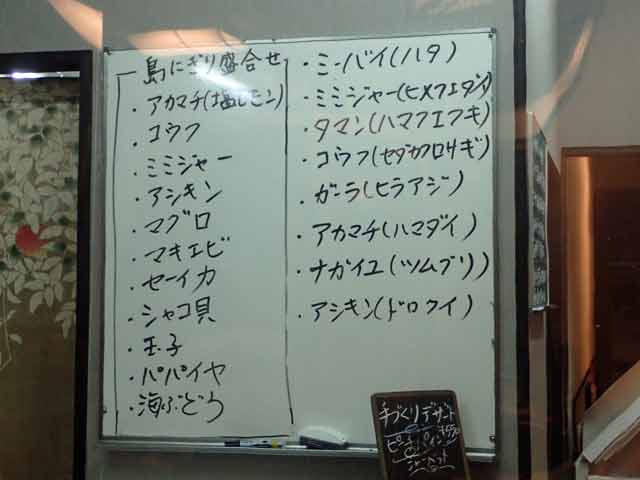 島にぎり盛合せ
・アカマチ(塩レモン)
・コウフ
・ミミジャー
・アシキン
・マグロ
・マキエビ
・セーイカ
・シャコ貝
・玉子
・パパイヤ
・海ぶどう
・ミーバイ(ハタ)
・ミミジャー(ヒメフエダイ)
・タマン(ハマフエフキ)
・コウフ(セダカクロサギ)
・ガーラ(ヒラアジ)
・アカマチ(ハマダイ)
・ナガイユ(ツムブリ)
・アシキン(ドロクイ)
手づくりデザート
シャーベット